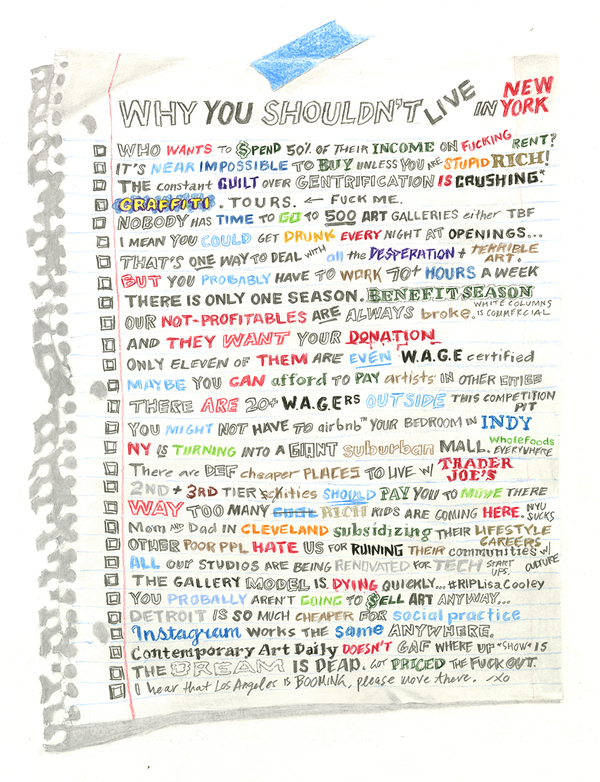 WHY YOU SHOULDN'T LIVE IN NEW YORK
WHO WANTS TO $PEND 50% OF THEIR INCOME ON FUCKING RENT?
IT'S NEAR IMPOSSIBLE TO BUY UNLESS YOU ARE STUPID RICH!
THE constant GUILT OVER GENTRIFICATION IS CRUSHING.*
GRAFFITI . TOURS. ← FUCK ME.
NOBODY HAS TIME TO GO TO 500 ART GALLERIES either TBF
I MEAN YOU COULD GET DRUNK EVERY NIGHT AT OPENINGS...
THAT'S ONE WAY TO DEAL WITH all the DESPERATION + TERRIBLE ART.
BUT YOU PROBABLY HAVE TO WORK 70+ HOURS A WEEK
THERE IS ONLY ONE SEASON. BENEFIT SEASON
OUR NOT-PROFITABLES ARE ALWAYS broke. WHITE COLUMNS IS COMMERCIAL
AND THEY WANT YOUR DONATION
ONLY ELEVEN OF THEM ARE EVEN W.A.G.E certified
MAYBE YOU CAN afford TO PAY artists IN OTHER CITIES
THERE ARE 20+ W.A.G.ERS OUTSIDE THIS COMPETITION PIT
YOU MIGHT NOT HAVE TO airbnb™ YOUR BEDROOM IN INDY
NY IS TURNING INTO A GIANT suburban MALL. Wholefoods EVERYWHERE
There are DEF cheaper PLACES TO LIVE W/ TRADER JOE'S
2ND + 3RD TIER cities SHOULD PAY YOU TO MOVE THERE
WAY TOO MANY COOL RICH KIDS ARE COMING HERE. NYU SUCKS
Mom AND Dad IN CLEVELAND subsidizing THEIR LIFESTYLE CAREERS
OTHER POOR PPL HATE US FOR RUINING THEIR communities w/ CULTURE
ALL OUR STUDIOS ARE BEING RENOVATED FOR TECH START UPS.
THE GALLERY MODEL IS DYING QUICKLY... #RIPLisaCooley
YOU PROBALLY AREN'T GOING TO $ELL ART ANYWAY...
DETROIT IS SO MUCH CHEAPER FOR social practice
Instagram WORKS THE Same ANYWHERE.
Contemporary Art Daily DOESN'T GAF WHERE UP "SHOW" IS
THE DREAM IS DEAD. GOT PRICED THE FUCK OUT.
I hear that Los Angeles is BOOMING, please move there. ~xo